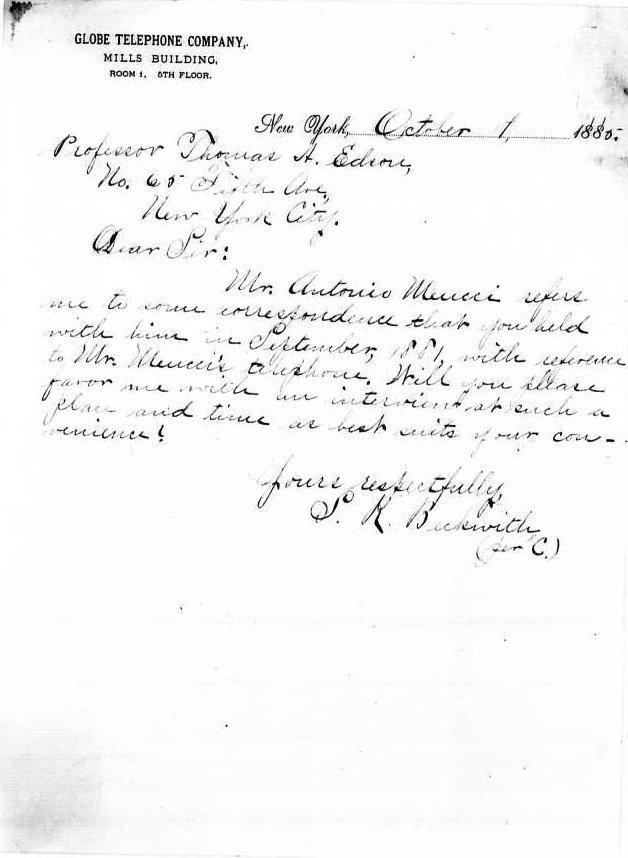 GLOBE TELEPHONE COMPANY,
MILLS BUILDING,
ROOM 1, 5TH FLOOR.
New York, October 1, 1885.
Professor Thomas A. Edison,
No. 65 Fifth Ave,
New York City.
Dear Sir:
Mr. Antonio Meucci refers
me to some correspondence that you held
with him in September, 1881, with reference
to Mr. Meucci's telephone. Will you please
favor me with an interview at such a
place and time as best suits your con-
venience!
Yours respectfully,
S. R. Beckwith
(per C.)